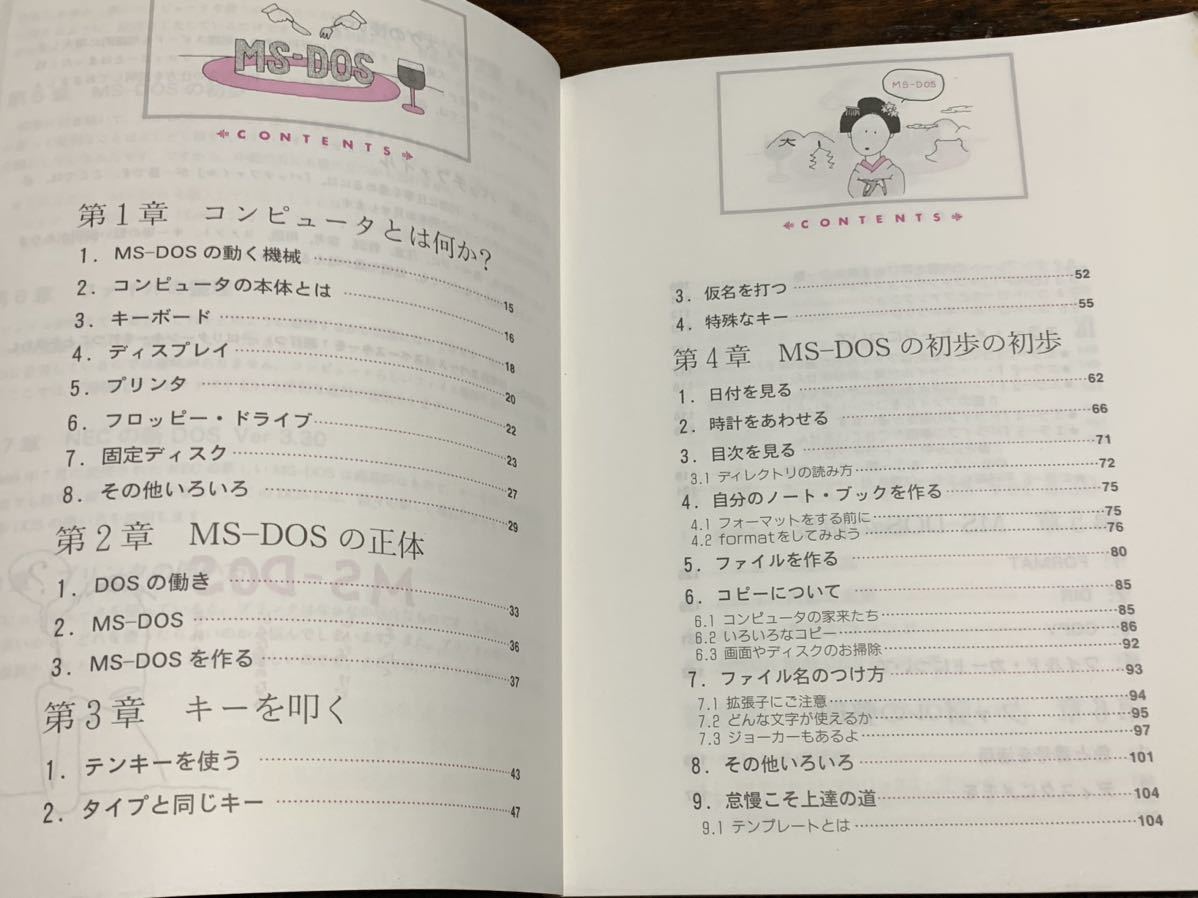 MS-DOS
CONTENTS
第1章 コンピュータとは何か?
1. MS-DOSの動く機械 15
2. コンピュータの本体とは 16
3. キーボード 18
4. ディスプレイ 20
5. プリンタ 22
6. フロッピー・ドライブ 23
7. 固定ディスク 27
8. その他いろいろ 29
第2章 MS-DOSの正体
1. DOSの働き 33
2. MS-DOS 36
3. MS-DOSを作る 37
第3章 キーを叩く
1. テンキーを使う 43
2. タイプと同じキー 47
MS-DOS
大
CONTENTS
3. 仮名を打つ 52
4. 特殊なキー 55
第4章 MS-DOSの初歩の初歩
1. 日付を見る 62
2. 時計をあわせる 66
3. 目次を見る 71
3.1 ディレクトリの読み方 72
4. 自分のノート・ブックを作る 75
4.1 フォーマットをする前に 75
4.2 formatをしてみよう 76
5. ファイルを作る 80
6. コピーについて 85
6.1 コンピュータの家来たち 85
6.2 いろいろなコピー 86
6.3 画面やディスクのお掃除 92
7. ファイル名のつけ方 93
7.1 拡張子にご注意 94
7.2 どんな文字が使えるか 95
7.3 ジョーカーもあるよ 97
8. その他いろいろ 101
9. 怠慢こそ上達の道 104
9.1 テンプレートとは 104